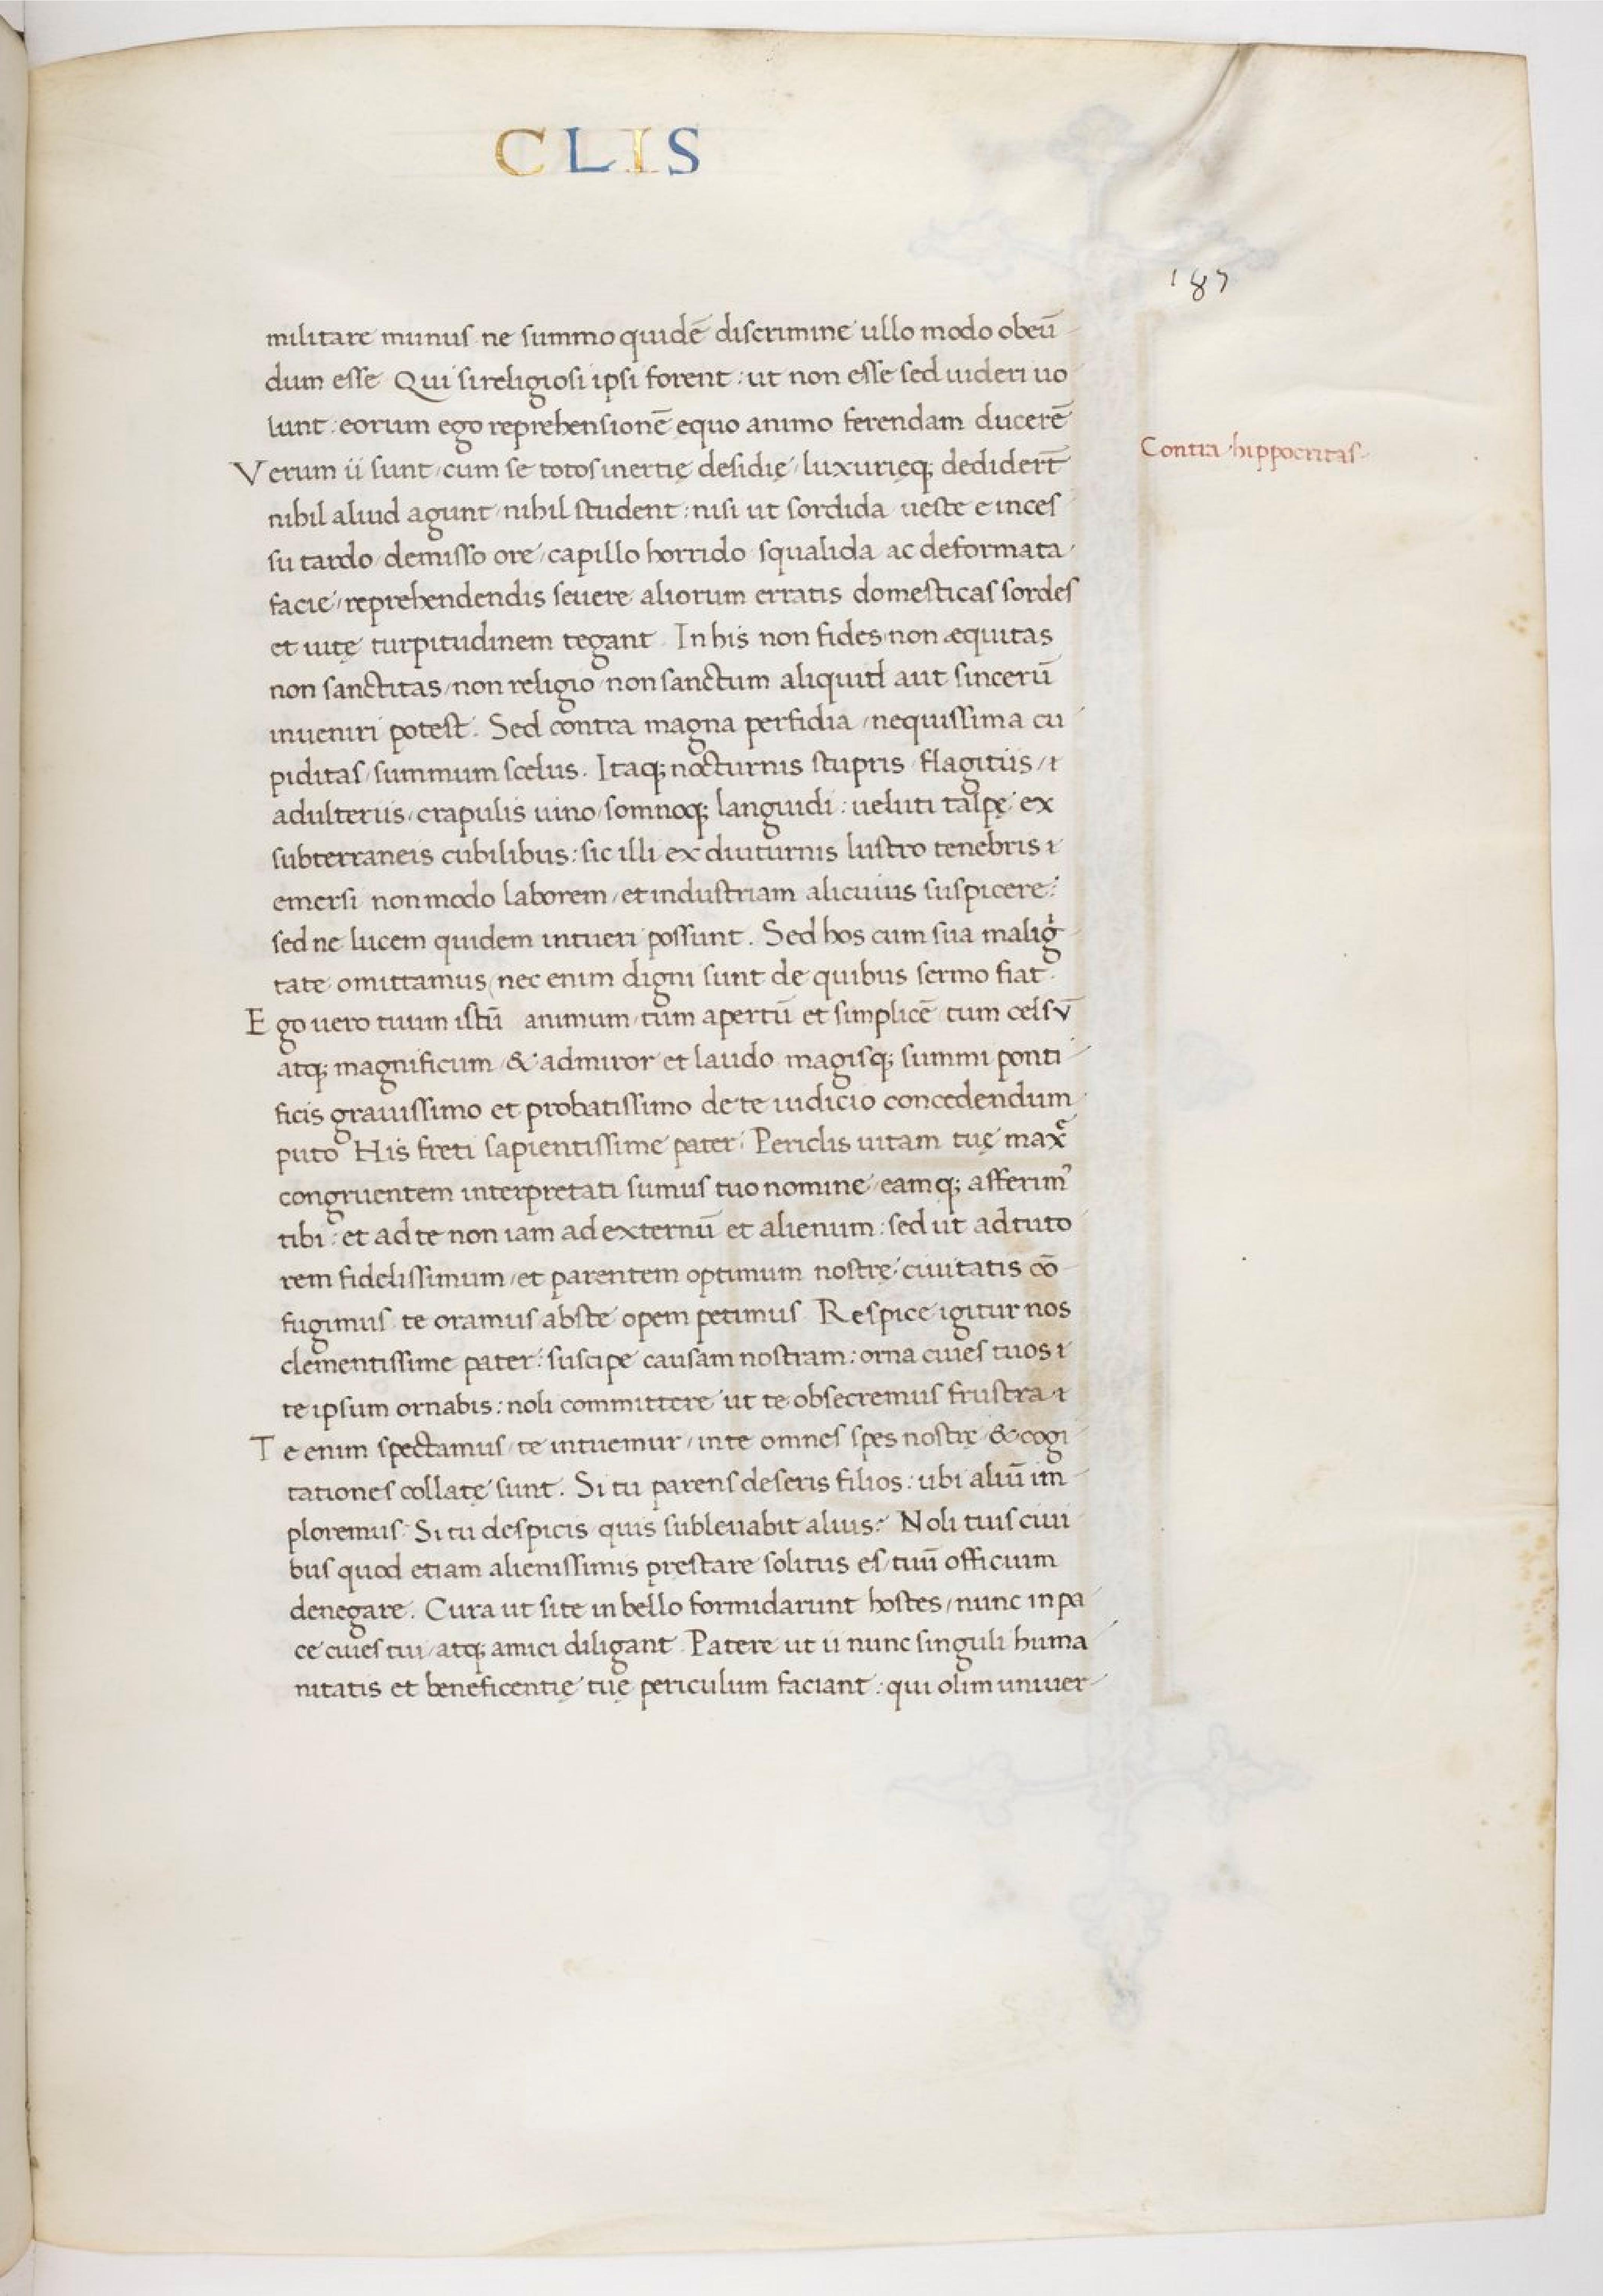 CLIS
187
militare munus ne summo quidē discrimine ullo modo obeū
dum esse Qui si religiosi ipsi forent: ut non esse sed uideri uo
lunt: eorum ego reprehensionē equo animo ferendam ducerē
Contra hippocritas
Verum ii sunt cum se totos inertię desidię/ luxurięq; dediderīt
nihil aliud agunt nihil student: nisi ut sordida ueste e inces
su tardo demisso ore/ capillo horrido squalida ac deformata
facie/ reprehendendis seuere aliorum erratis domesticas sordes
et uitę turpitudinem tegant. In his non fides non æquitas
non sanctitas/ non religio non sanctum aliquid aut sincerū
inueniri potest. Sed contra magna perfidia/ nequissima cu
piditas/ summum scelus. Itaq; nocturnis stupris flagitiis/ ⁊
adulteriis/ crapulis uino/ somnoq; languidi: ueluti talpę ex
subterraneis cubilibus: sic illi ex diuturnis lustro tenebris ⁊
emersi non modo laborem/ et industriam alicuius suspicere:
sed ne lucem quidem intueri possunt. Sed hos cum sua maligͥ
tate omittamus/ nec enim digni sunt de quibus sermo fiat.
Ego uero tuum istū animum/ tum apertū et simplicē tum celsū
atq; magnificum/ & admiror et laudo magisq; summi ponti
ficis grauissimo et probatissimo de te iudicio concedendum
puto His freti sapientissime pater: Periclis uitam tuę maxͤ
congruentem interpretati sumus tuo nomine eamq; afferimꝰ
tibi: et ad te non iam ad externū et alienum: sed ut ad tuto
rem fidelissimum/ et parentem optimum nostrę ciuitatis cō
fugimus te oramus abs te opem petimus Respice igitur nos
clementissime pater: suscipe causam nostram: orna ciues tuos ⁊
te ipsum ornabis: noli committere ut te obsecremus frustra ⁊
Te enim spectamus/ te intuemur/ in te omnes spes nostrę & cogi
tationes collatę sunt. Si tu parens deseris filios: ubi aliū im
ploremus: Si tu despicis quis subleuabit alius: Noli tuis ciui
bus quod etiam alienissimis pręstare solitus es/ tuū officium
denegare. Cura ut si te in bello formidarunt hostes/ nunc in pa
ce ciues tui/ atq; amici diligant. Patere ut ii nunc singuli huma
nitatis et beneficentię tuę periculum faciant: qui olim uniuer